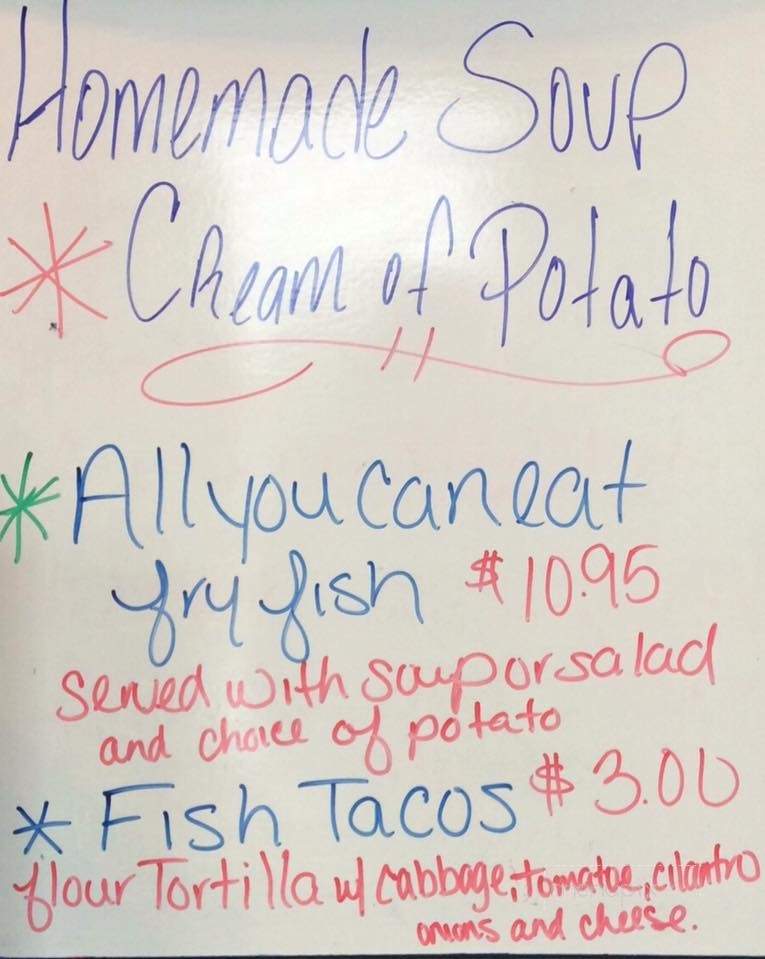 Homemade Soup
* Cream of Potato
* All you can eat
fry fish $10.95
served with soup or salad
and choice of potato
* Fish Tacos $3.00
flour Tortilla w/ cabbage, tomatoe, cilantro
onions and cheese.